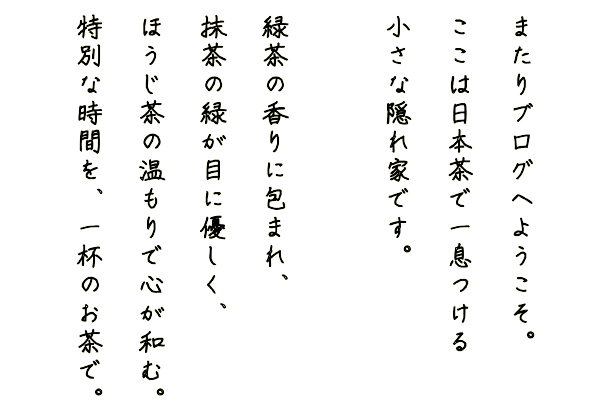 またりブログへようこそ。
ここは日本茶で一息つける
小さな隠れ家です。
緑茶の香りに包まれ、
抹茶の緑が目に優しく、
ほうじ茶の温もりで心が和む。
特別な時間を、一杯のお茶で。